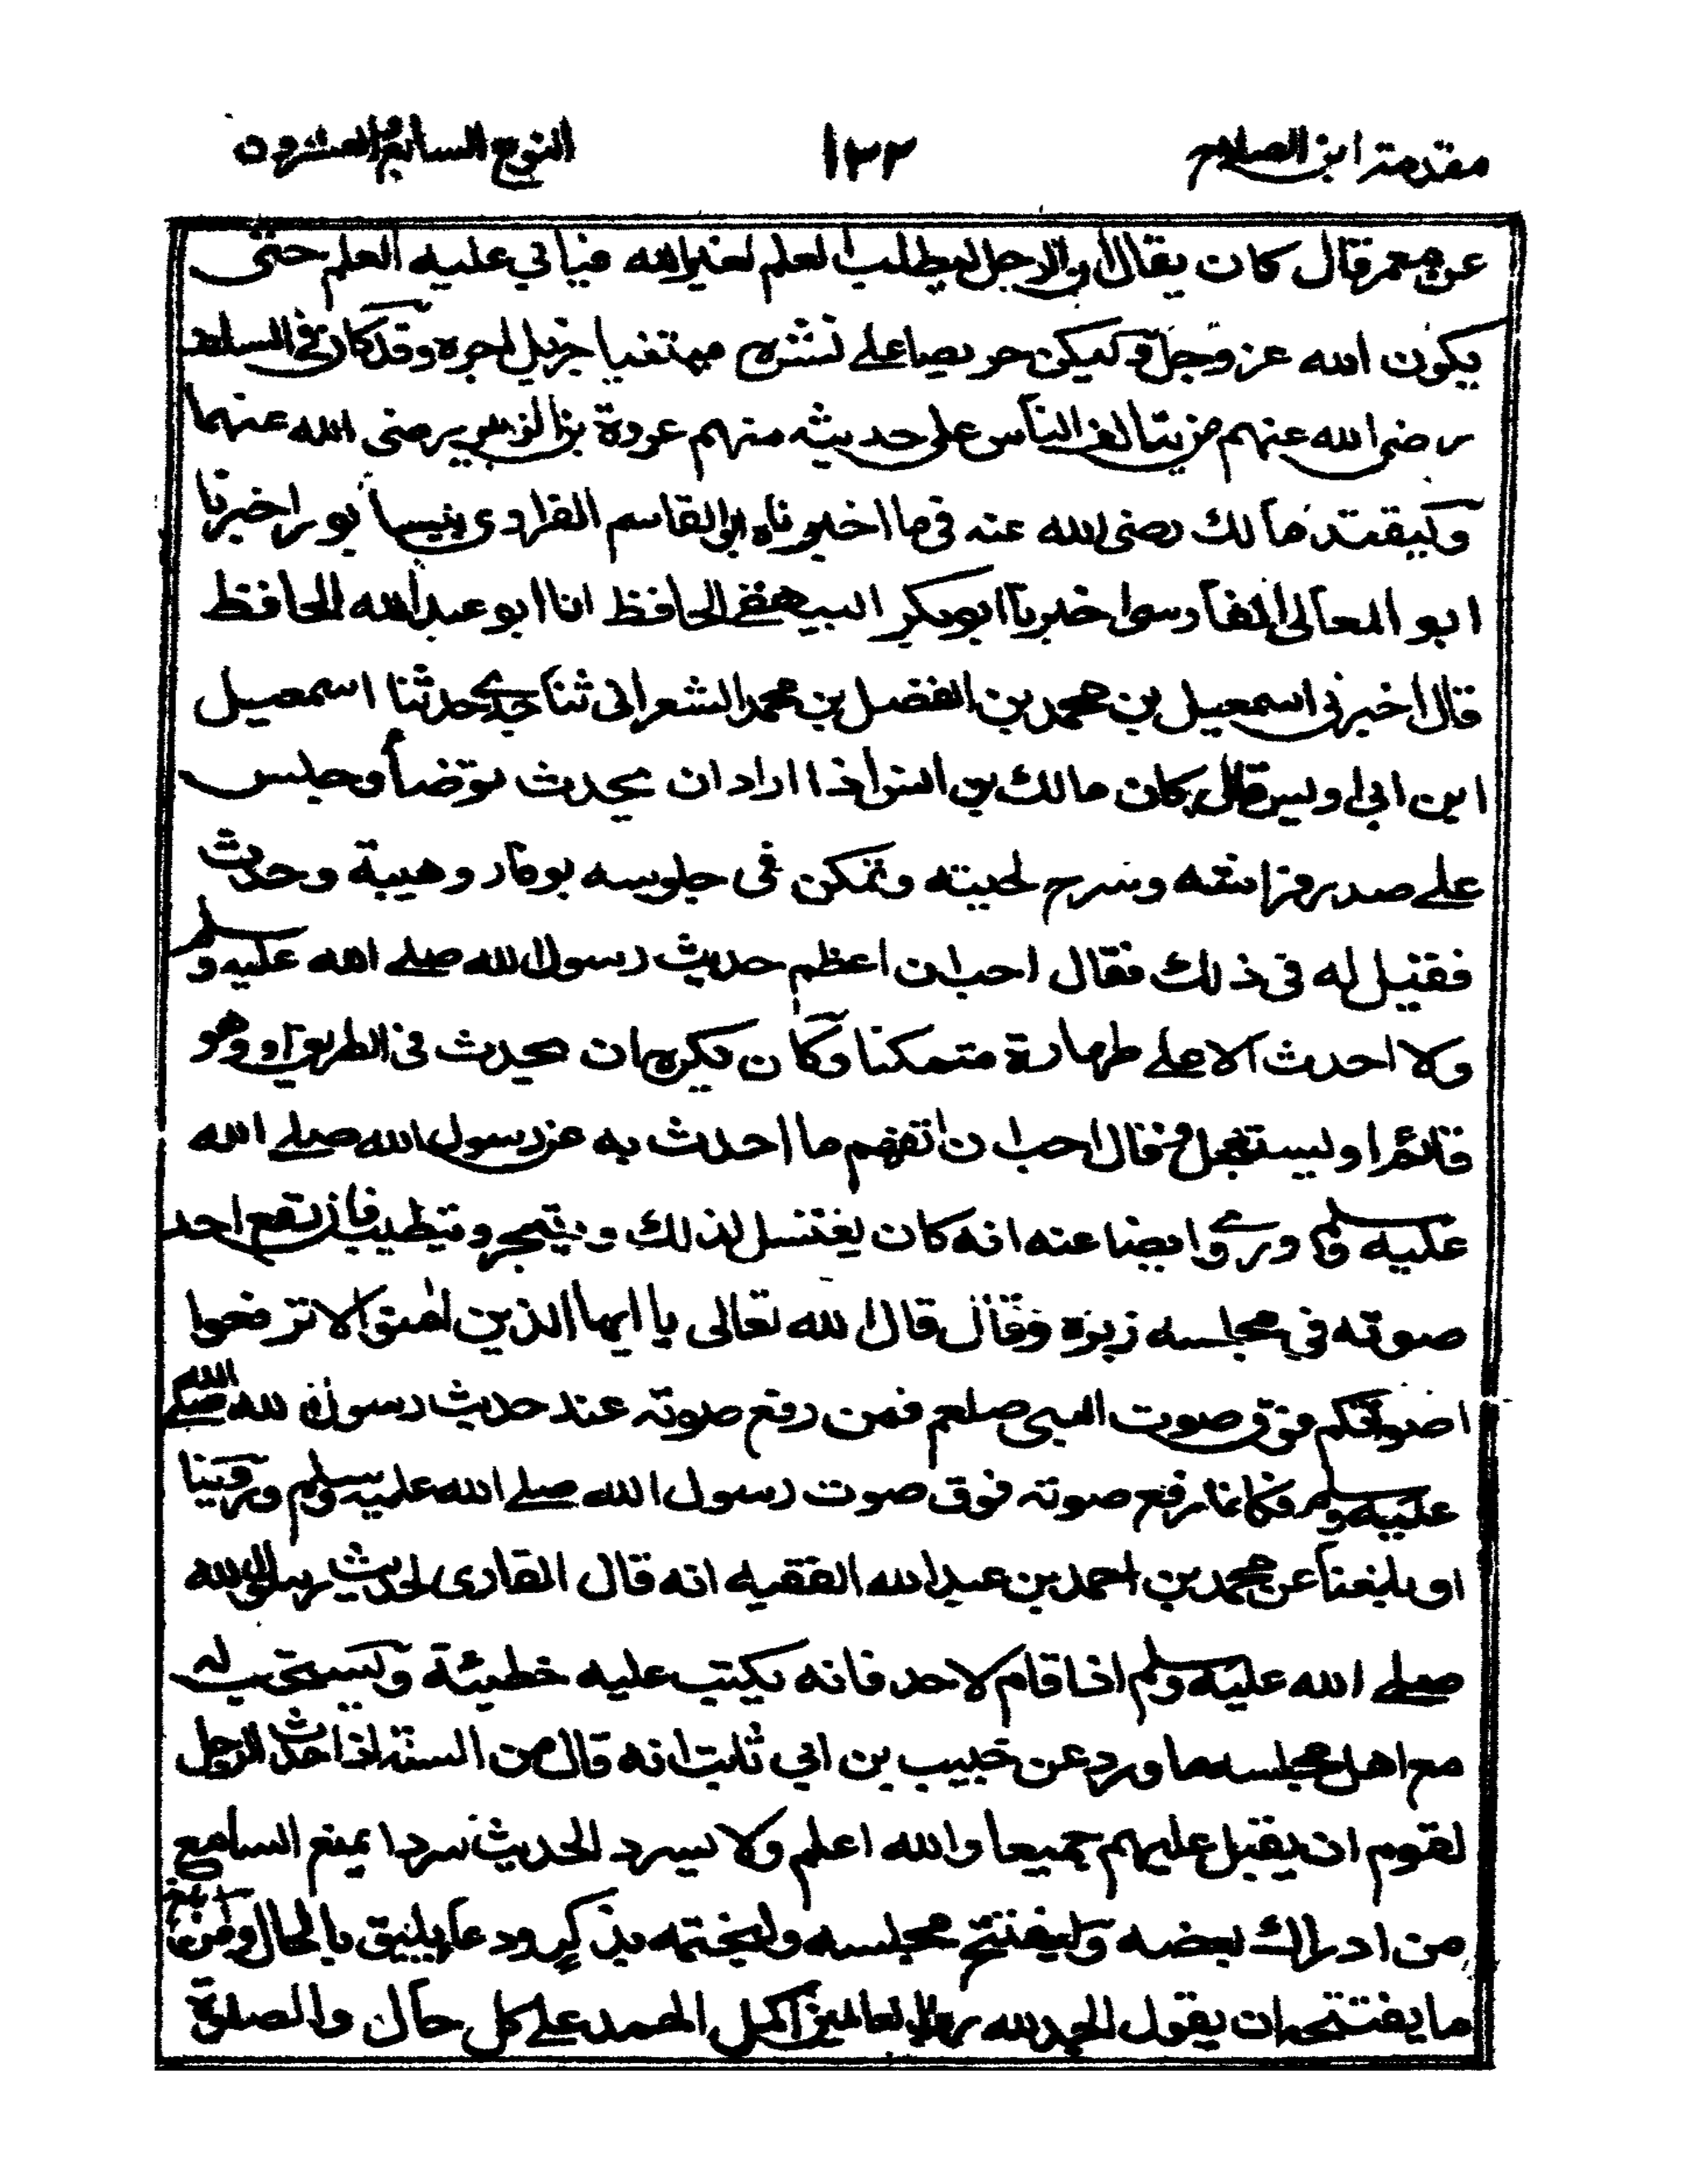 مقدمة ابن الصلاح ١٢٢ النوع السابع العشرون
عن معمر قال كان يقال ان الرجل ليطلب العلم لغير الله فيابي عليه العلم حتى
يكون الله عز وجل وليكن حريصا على نشره مبتغيا جزيل اجره وقد كان في السلف
رضي الله عنهم من يتالف الناس على حديثه منهم عروة بن الزبير رضي الله عنهما
وليقتد مالك رضي الله عنه في ما اخبرناه ابو القاسم الفراوي بنيسابور اخبرنا
ابو المعالي الفارسي اخبرنا ابو بكر البيهقي الحافظ انا ابو عبد الله الحافظ
قال اخبرني اسمعيل بن محمد بن الفضل بن محمد الشعراني ثنا جدي حدثنا اسمعيل
ابن ابي اويس قال كان مالك بن انس اذا اراد ان يحدث توضأ وجلس
على صدر فراشه وسرح لحيته وتمكن في جلوسه بوقار وهيبة وحدث
فقيل له في ذلك فقال احب ان اعظم حديث رسول الله صلى الله عليه وسلم
ولا احدث الا على طهارة متمكنا وكان يكره ان يحدث في الطريق او وهو
قائم او يستعجل وقال احب ان اتفهم ما احدث به عن رسول الله صلى الله
عليه وسلم وروي ايضا عنه انه كان يغتسل لذلك ويتبخر ويتطيب فان رفع احد
صوته في مجلسه زبره وقال قال الله تعالى يا ايها الذين امنوا لا ترفعوا
اصواتكم فوق صوت النبي صلعم فمن رفع صوته عند حديث رسول الله صلى الله
عليه وسلم فكانما رفع صوته فوق صوت رسول الله صلى الله عليه وسلم وروينا
او بلغنا عن محمد بن احمد بن عبد الله الفقيه انه قال القاري لحديث رسول الله
صلى الله عليه وسلم اذا قام لاحد فانه يكتب عليه خطيئة ويستحب له
مع اهل مجلسه ما ورد عن حبيب بن ابي ثابت انه قال من السنة اذا حدث الرجل
لقوم ان يقبل عليهم جميعا والله اعلم ولا يسرد الحديث سردا يمنع السامع
من ادراك بعضه وليفتتح مجلسه وليختمه بذكر ودعاء يليق بالحال ومن ابلغ
ما يفتتحه ان يقول الحمد لله رب العالمين اكمل الحمد على كل حال والصلوة